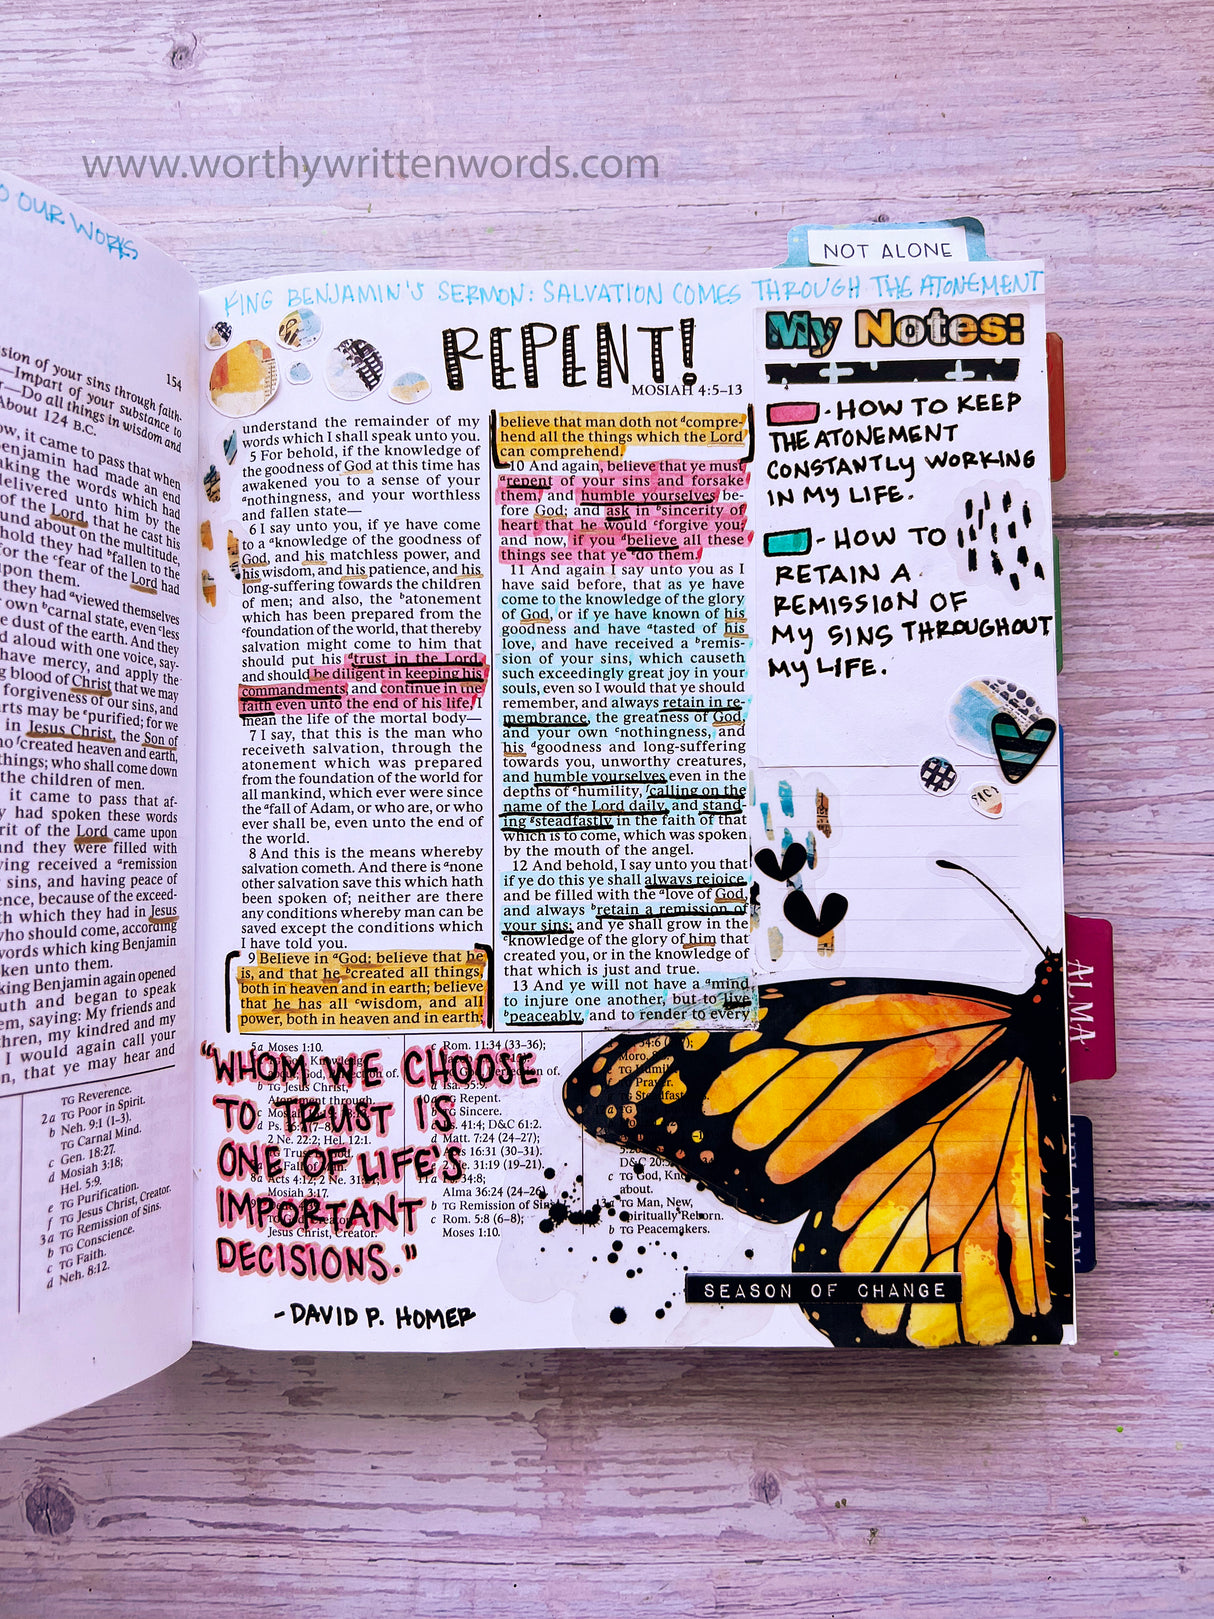 www.worthywrittenwords.com
O OUR WORKS
NOT ALONE
KING BENJAMIN'S SERMON: SALVATION COMES THROUGH THE ATONEMENT
REPENT!
MOSIAH 4:5–13
My Notes:
- HOW TO KEEP
THE ATONEMENT
CONSTANTLY WORKING
IN MY LIFE.
- HOW TO
RETAIN A
REMISSION OF
MY SINS THROUGHOUT
MY LIFE.
154
sion of your sins through faith-
—Impart of your substance to
—Do all things in wisdom and
About 124 B.C.
ow, it came to pass that when
enjamin had made an end
aking the words which had
delivered unto him by the
of the Lord, that he cast his
und about on the multitude,
hold they had ᵇfallen to the
for the ᶜfear of the Lord had
upon them.
they had ᵃviewed themselves
own ᵇcarnal state, even ᶜless
e dust of the earth. And they
d aloud with one voice, say-
have mercy, and apply the
g blood of Christ that we may
forgiveness of our sins, and
arts may be ᵉpurified; for we
in Jesus Christ, the Son of
ho ᶠcreated heaven and earth,
things; who shall come down
the children of men.
it came to pass that af-
y had spoken these words
rit of the Lord came upon
and they were filled with
ving received a ᵃremission
sins, and having peace of
ence, because of the exceed-
th which they had in Jesus
who should come, according
words which king Benjamin
ken unto them.
king Benjamin again opened
uth and began to speak
em, saying: My friends and
thren, my kindred and my
I would again call your
n, that ye may hear and
TG Reverence.
2a TG Poor in Spirit.
b Neh. 9:1 (1–3).
TG Carnal Mind.
c Gen. 18:27.
d Mosiah 3:18;
Hel. 5:9.
e TG Purification.
f TG Jesus Christ, Creator.
3a TG Remission of Sins.
b TG Conscience.
c TG Faith.
d Neh. 8:12.
understand the remainder of my
words which I shall speak unto you.
5 For behold, if the knowledge of
the goodness of God at this time has
awakened you to a sense of your
ᵃnothingness, and your worthless
and fallen state—
6 I say unto you, if ye have come
to a ᵃknowledge of the goodness of
God, and his matchless power, and
his wisdom, and his patience, and his
long-suffering towards the children
of men; and also, the ᵇatonement
which has been prepared from the
ᶜfoundation of the world, that thereby
salvation might come to him that
should put his ᵈtrust in the Lord,
and should be diligent in keeping his
commandments, and continue in the
faith even unto the end of his life, I
mean the life of the mortal body—
7 I say, that this is the man who
receiveth salvation, through the
atonement which was prepared
from the foundation of the world for
all mankind, which ever were since
the ᵃfall of Adam, or who are, or who
ever shall be, even unto the end of
the world.
8 And this is the means whereby
salvation cometh. And there is ᵃnone
other salvation save this which hath
been spoken of; neither are there
any conditions whereby man can be
saved except the conditions which
I have told you.
9 Believe in ᵃGod; believe that he
is, and that he ᵇcreated all things,
both in heaven and in earth; believe
that he has all ᶜwisdom, and all
power, both in heaven and in earth;
believe that man doth not ᵈcompre-
hend all the things which the Lord
can comprehend.
10 And again, believe that ye must
ᵃrepent of your sins and forsake
them, and humble yourselves be-
fore God; and ask in ᵇsincerity of
heart that he would ᶜforgive you;
and now, if you ᵈbelieve all these
things see that ye ᵉdo them.
11 And again I say unto you as I
have said before, that as ye have
come to the knowledge of the glory
of God, or if ye have known of his
goodness and have ᵃtasted of his
love, and have received a ᵇremis-
sion of your sins, which causeth
such exceedingly great joy in your
souls, even so I would that ye should
remember, and always retain in re-
membrance, the greatness of God,
and your own ᶜnothingness, and
his ᵈgoodness and long-suffering
towards you, unworthy creatures,
and humble yourselves even in the
depths of ᵉhumility, ᶠcalling on the
name of the Lord daily, and stand-
ing ᵍsteadfastly in the faith of that
which is to come, which was spoken
by the mouth of the angel.
12 And behold, I say unto you that
if ye do this ye shall always rejoice,
and be filled with the ᵃlove of God,
and always ᵇretain a remission of
your sins; and ye shall grow in the
ᶜknowledge of the glory of him that
created you, or in the knowledge of
that which is just and true.
13 And ye will not have a ᵃmind
to injure one another, but to live
ᵇpeaceably, and to render to every
5a Moses 1:10.
TG Jesus Christ,
Atonement through.
2 Ne. 22:2; Hel. 12:1.
8a Acts 4:12; 2 Ne. 31:21
Mosiah 3:17.
Jesus Christ, Creator.
c Rom. 11:34 (33–36);
d Isa. 55:9.
10a TG Repent.
b TG Sincere.
41:4; D&C 61:2.
d Matt. 7:24 (24–27);
Acts 16:31 (30–31).
e 2 Ne. 31:19 (19–21).
11a Ps. 34:8;
Alma 36:24 (24–26)
b TG Remission of Sins
c Rom. 5:8 (6–8);
Moses 1:10.
D&C 20:
c TG God, Kno
about.
13a TG Man, New,
Spiritually Reborn.
b TG Peacemakers.
"WHOM WE CHOOSE
TO TRUST IS
ONE OF LIFE'S
IMPORTANT
DECISIONS."
- DAVID P. HOMER
SEASON OF CHANGE
ALMA